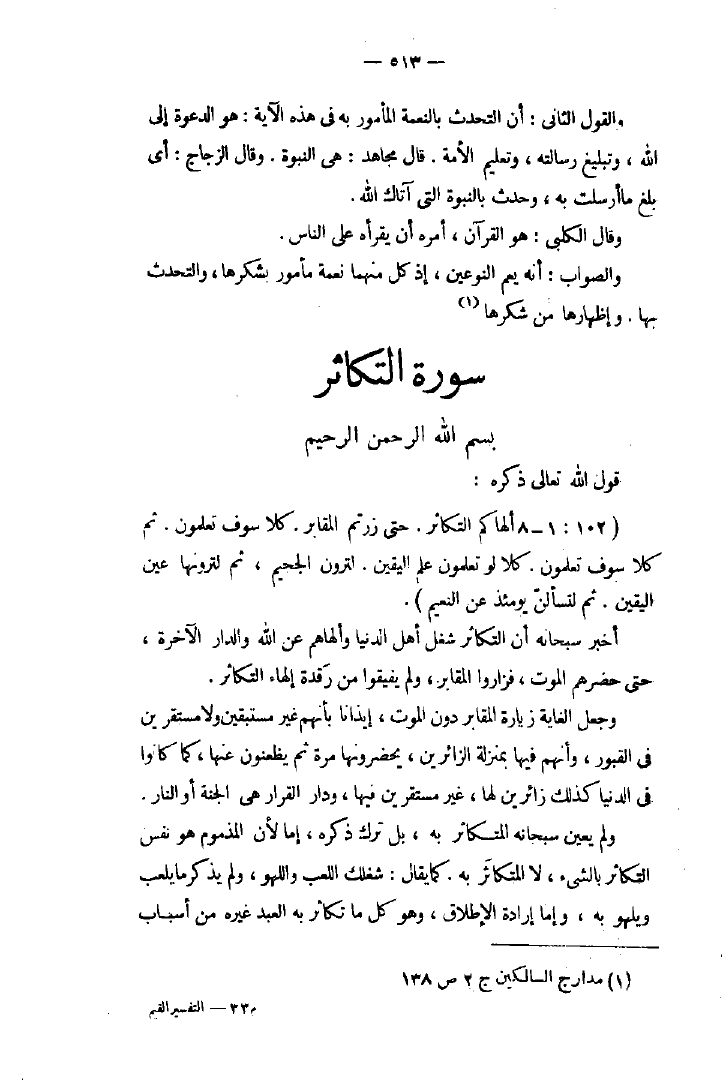 — ٥١٣ —
والقول الثانى : أن التحدث بالنعمة المأمور به فى هذه الآية : هو الدعوة إلى
الله ، وتبليغ رسالته ، وتعليم الأمة . قال مجاهد : هى النبوة . وقال الزجاج : أى
بلغ ماأرسلت به ، وحدث بالنبوة التى آتاك الله .
وقال الكلبى : هو القرآن ، أمره أن يقرأه على الناس .
والصواب : أنه يعم النوعين ، إذ كل منهما نعمة مأمور بشكرها ، والتحدث
بها . وإظهارها من شكرها (١)
سورة التكاثر
بسم الله الرحمن الرحيم
قول الله تعالى ذكره :
( ١٠٢ : ١ – ٨ ألهاكم التكاثر . حتى زرتم المقابر . كلا سوف تعلمون . ثم
كلا سوف تعلمون . كلا لو تعلمون علم اليقين . لترون الجحيم ، ثم لترونها عين
اليقين . ثم لتسألنّ يومئذ عن النعيم ) .
أخبر سبحانه أن التكاثر شغل أهل الدنيا وألهاهم عن الله والدار الآخرة ،
حتى حضرهم الموت ، فزاروا المقابر ، ولم يفيقوا من رَقدة إلهاء التكاثر .
وجعل الغاية زيارة المقابر دون الموت ، إيذانا بأنهم غير مستبقين ولا مستقرين
فى القبور ، وأنهم فيها بمنزلة الزائرين ، يحضرونها مرة ثم يظعنون عنها ، كما كانوا
فى الدنيا كذلك زائرين لها ، غير مستقرين فيها ، ودار القرار هى الجنة أو النار .
ولم يعين سبحانه المتكاثر به ، بل ترك ذكره ، إما لأن المذموم هو نفس
التكاثر بالشىء ، لا المتكاثَر به . كمايقال : شغلك اللعب واللهو ، ولم يذكر مايلعب
ويلهو به ، وإما إرادة الإطلاق ، وهو كل ما تكاثر به العبد غيره من أسباب
(١) مدارج السالكين ج ٢ ص ١٣٨
م ٣٣ — التفسير القيم